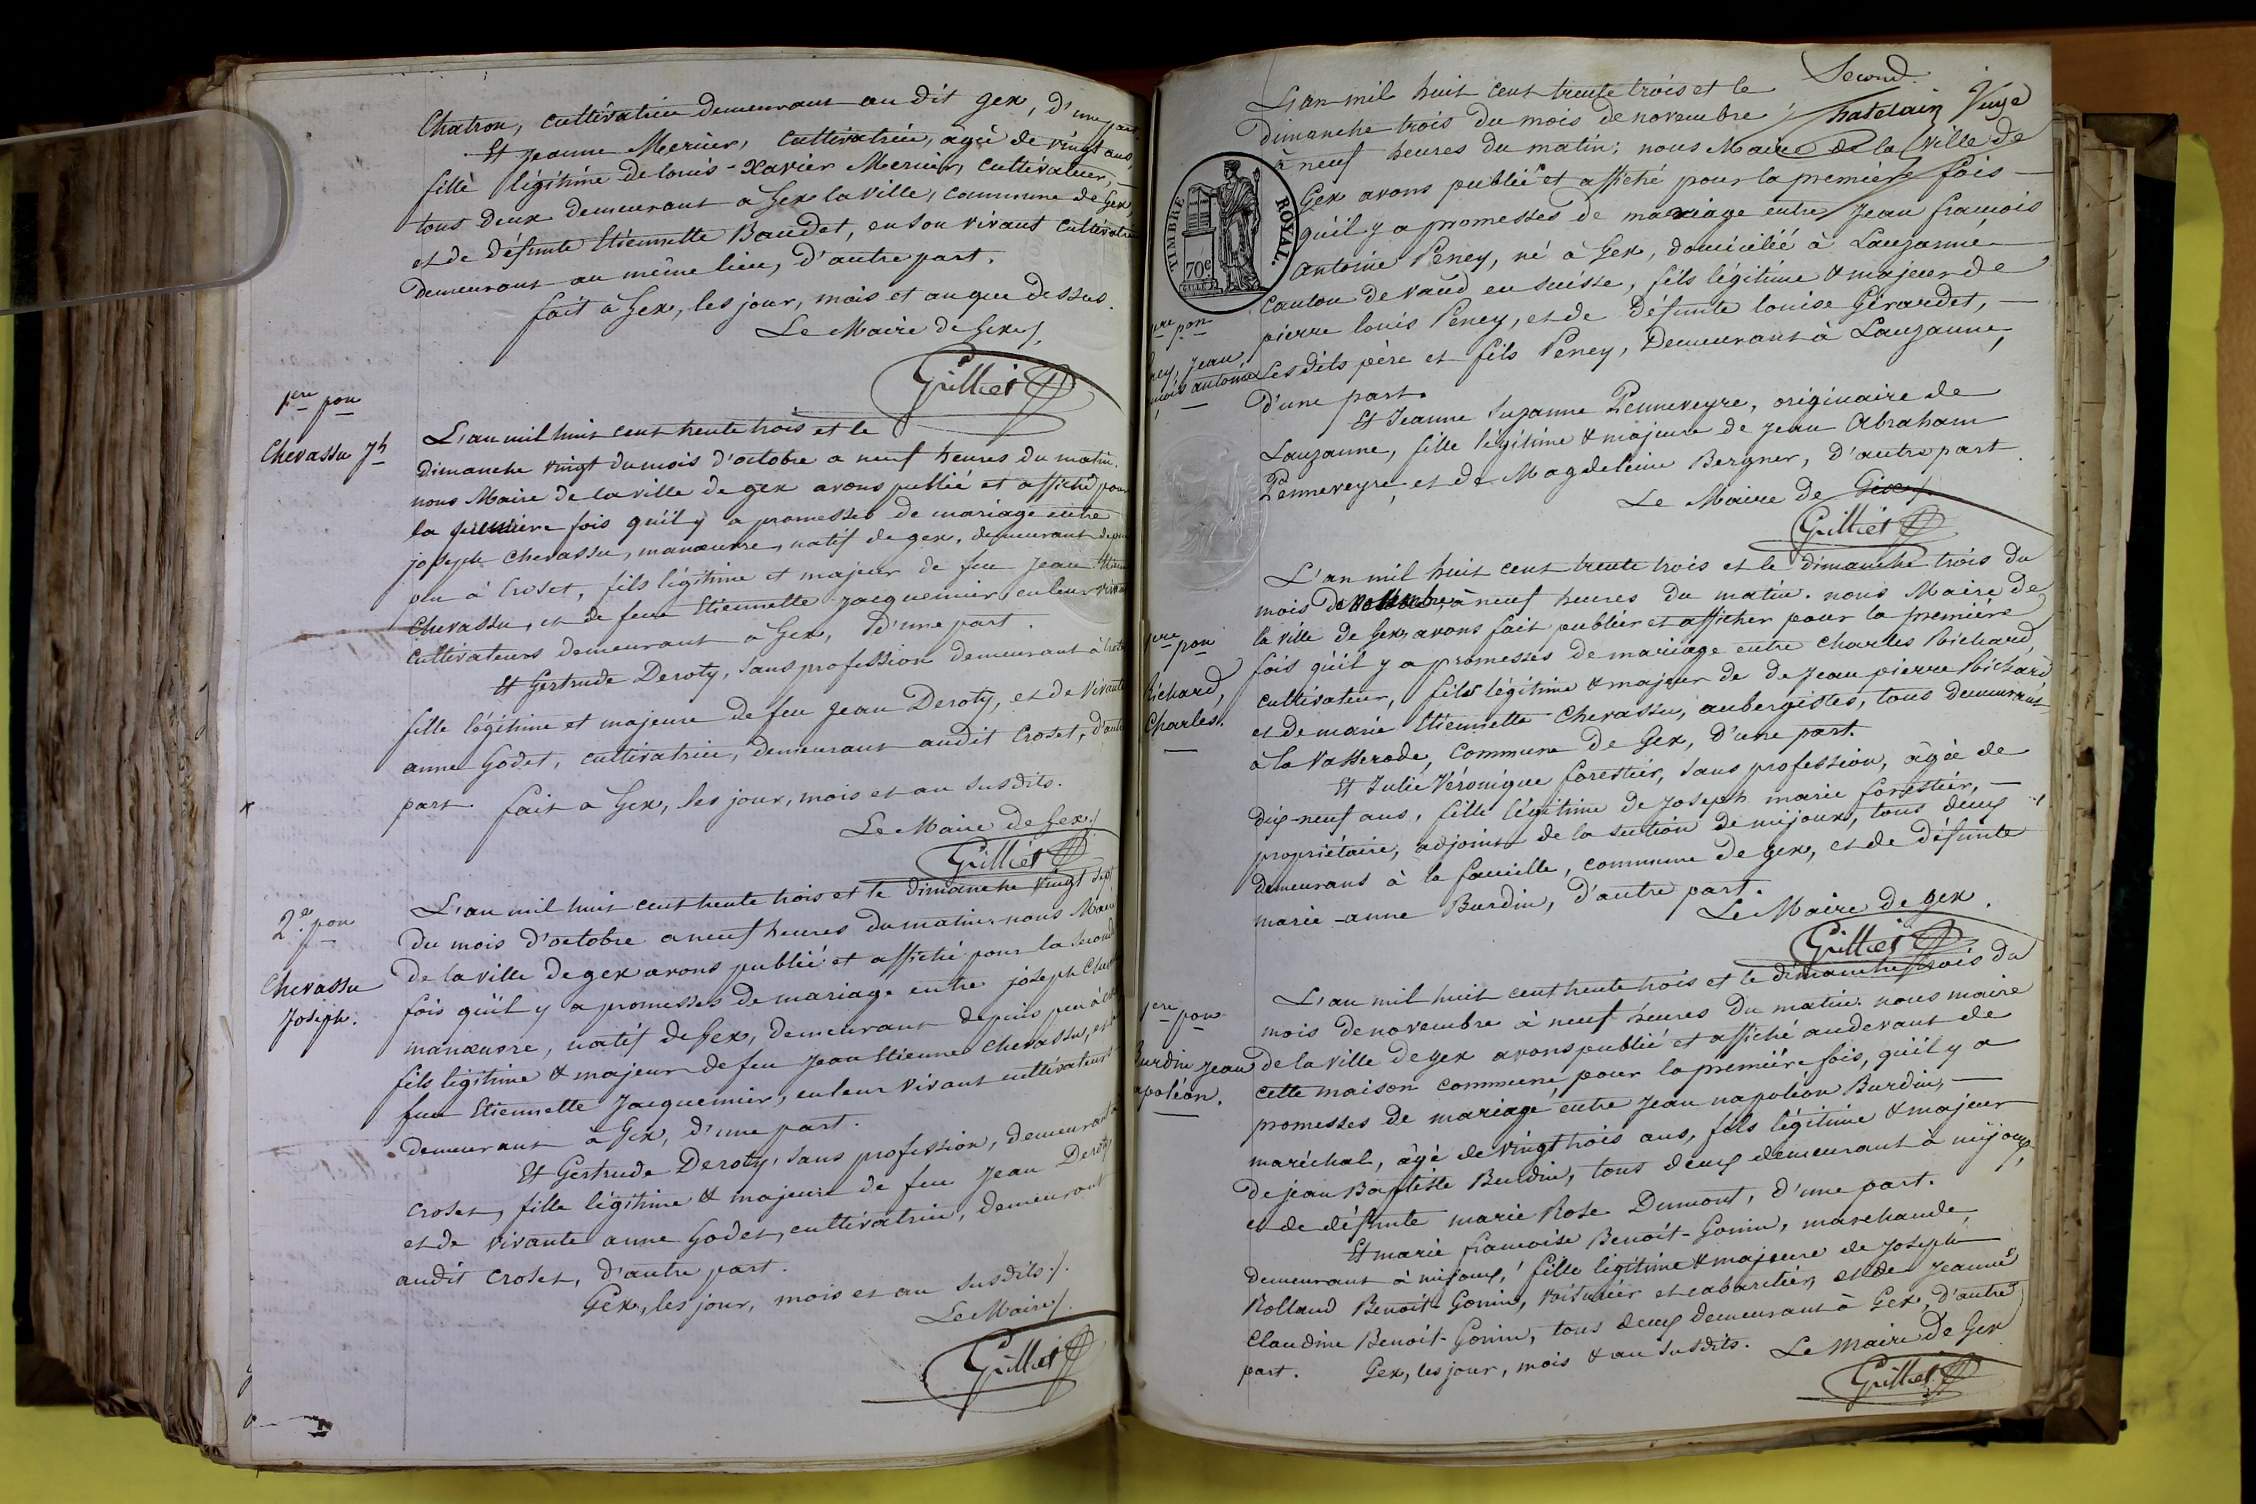 Chatron, cultivatrice demeurant au dit gex, d'une part
Et Jeanne Mernier, cultivatrice, âgée de vingt ans,
fille légitime de louis-Xavier Mernier, cultivateur,
tous deux demeurant a Gex la ville, commune de Gex,
et de défunte Etiennette Baudet, en son vivant cultivatrice
demeurant au même lieu, d'autre part.
fait a Gex, les jour, mois et an que dessus.
Le Maire de Gex
Grilliet
1ere pon
Chevassu Jh
L'an mil huit cent trente trois et le
dimanche vingt du mois d'octobre a neuf heures du matin.
nous Maire de la ville de gex avons publié et affiché pour
la première fois qu'il y a promesses de mariage entre
joseph Chevassu, manœuvre, natif de gex, demeurant depuis
peu à Croset, fils légitime et majeur de feu Jean Etienne
Chevassu, et de feue Etiennette Jacquemier en leur vivant
cultivateurs demeurant à Gex, d'une part.
Et Gertrude Deroty, sans profession demeurant à Croset
fille légitime et majeure de feu Jean Deroty, et de vivante
anne Godet, cultivatrice, demeurant audit Croset, d'autre
part. fait a Gex, les jour, mois et an susdits.
Le Maire de Gex
Grilliet
2e pon
Chevassu
Joseph.
L'an mil huit cent trente trois et le dimanche vingt sept
du mois d'octobre a neuf heures du matin nous Maire
de la ville de gex avons publié et affiché pour la seconde
fois qu'il y a promesses de mariage entre joseph Chevassu
manœuvre, natif de Gex, demeurant depuis peu à
fils légitime & majeur de feu Jean Etienne Chevassu, et de
feue Etiennette Jacquemier, en leur vivant cultivateurs
demeurant à Gex, d'une part.
Et Gertrude Deroty, sans profession, demeurant à
Croset, fille légitime & majeure de feu Jean Deroty
et de vivante anne Godet, cultivatrice, demeurant
audit Croset, d'autre part.
Gex, les jour, mois et an susdits.
Le Maire
Grilliet
Second.
Chatelain Vuye
L'an mil huit cent trente trois et le
dimanche trois du mois de novembre
à neuf heures du matin; nous Maire de la Ville de
Gex avons publié et affiché pour la première fois
qu'il y a promesses de mariage entre Jean françois
antoine Peney, né à Gex, domicilié à Lauzanne
Canton de vaud en suisse, fils légitime & majeur de
pierre louis Peney, et de défunte louise Girardet,
Les dits père et fils Peney, Demeurant à Lauzanne,
d'une part.
TIMBRE ROYAL.
70c
1ere pon
Jean
antoine
Et Jeanne Suzanne Penneveyre, originaire de
Lauzanne, fille légitime & majeure de Jean Abraham
Penneveyre, et de Magdeleine Bergner, d'autre part
Le Maire de Gex
Grilliet
1ere pon
Richard,
Charles.
L'an mil huit cent trente trois et le dimanche trois du
mois de novembre à neuf heures du matin. nous Maire de
la ville de Gex, avons fait publier et afficher pour la première
fois qu'il y a promesses de mariage entre Charles Richard,
cultivateur, fils légitime & majeur de de Jean pierre Richard
et de marie Etiennette Chevassu, aubergistes, tous demeurant
à la Vasserode, commune de Gex, d'une part.
Et Julie Véronique forestier, sans profession, âgée de
dix-neuf ans, fille légitime de Joseph marie forestier,
propriétaire, adjoint de la section de mijoux, tous deux
demeurans à la faucille, commune de gex, et de défunte
marie-anne Burdin, d'autre part.
Le Maire de gex.
Grilliet
1ere pon
Burdin Jean
napoléon.
L'an mil huit cent trente trois et le dimanche trois du
mois de novembre à neuf heures du matin. nous maire
de la ville de gex avons publié et affiché au devant de
cette maison commune, pour la première fois, qu'il y a
promesses de mariage entre Jean napoléon Burdin,
maréchal, âgé de vingt trois ans, fils légitime & majeur
de jean Baptiste Burdin, tous deux demeurant à mijoux,
et de défunte marie Rose Dumont, d'une part.
Et marie françoise Benoit-Gonin, marchande,
demeurant à mijoux, fille légitime & majeure de Joseph
Rolland Benoit-Gonin, voiturier et cabaretier, et de Jeanne
Claudine Benoit-Gonin, tous deux demeurant à Gex, d'autre
part. Gex, les jour, mois & an susdits. Le Maire de Gex
Grilliet